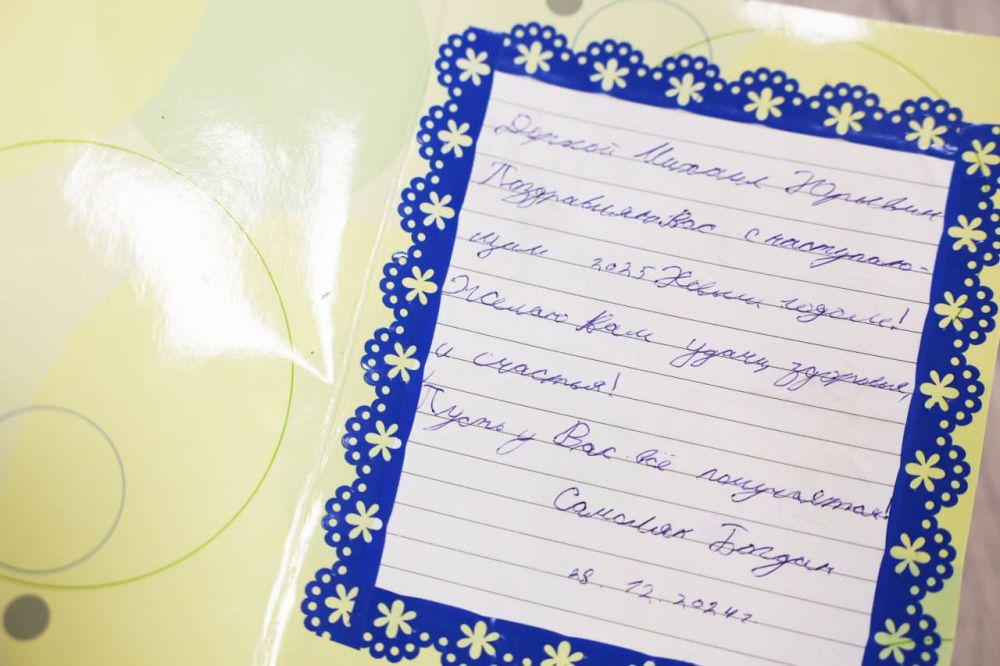 Дорогой Михаил Юрьевич
Поздравляю Вас с наступаю-
щим 2025 Новым годом!
Желаю Вам удачи, здоровья,
и счастья!
Пусть у Вас всё получается!
Самоляк Богдан
28.12.2024г.